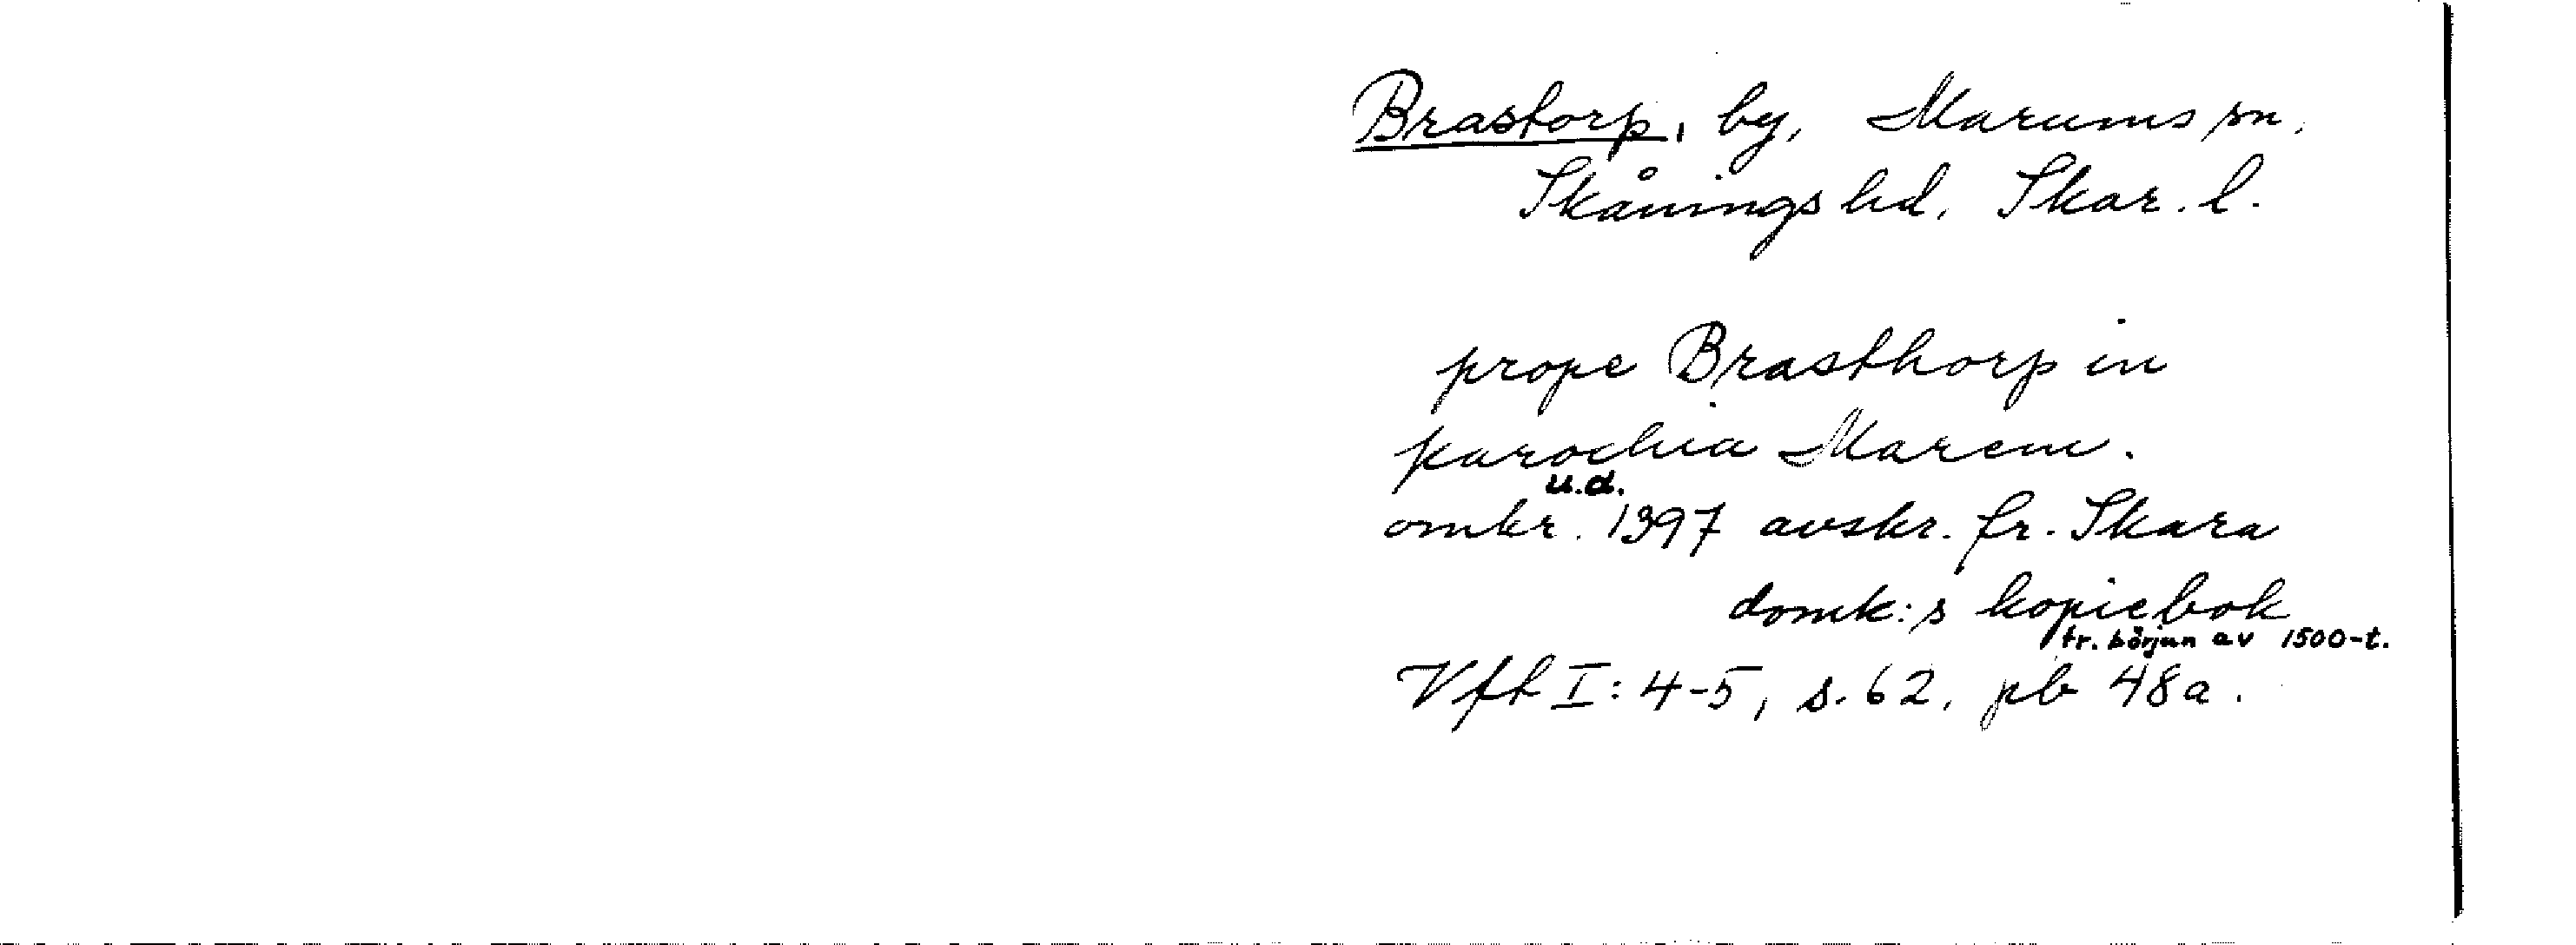 Brastorp, by, Marums sn,
Skånings hd, Skar. l.
prope Brasthorp in
parochia Marem.
u.d.
omkr. 1397 avskr. fr. Skara
domk:s kopiebok
fr. början av 1500-t.
Vft I: 4-5, s. 62, pb 48a.